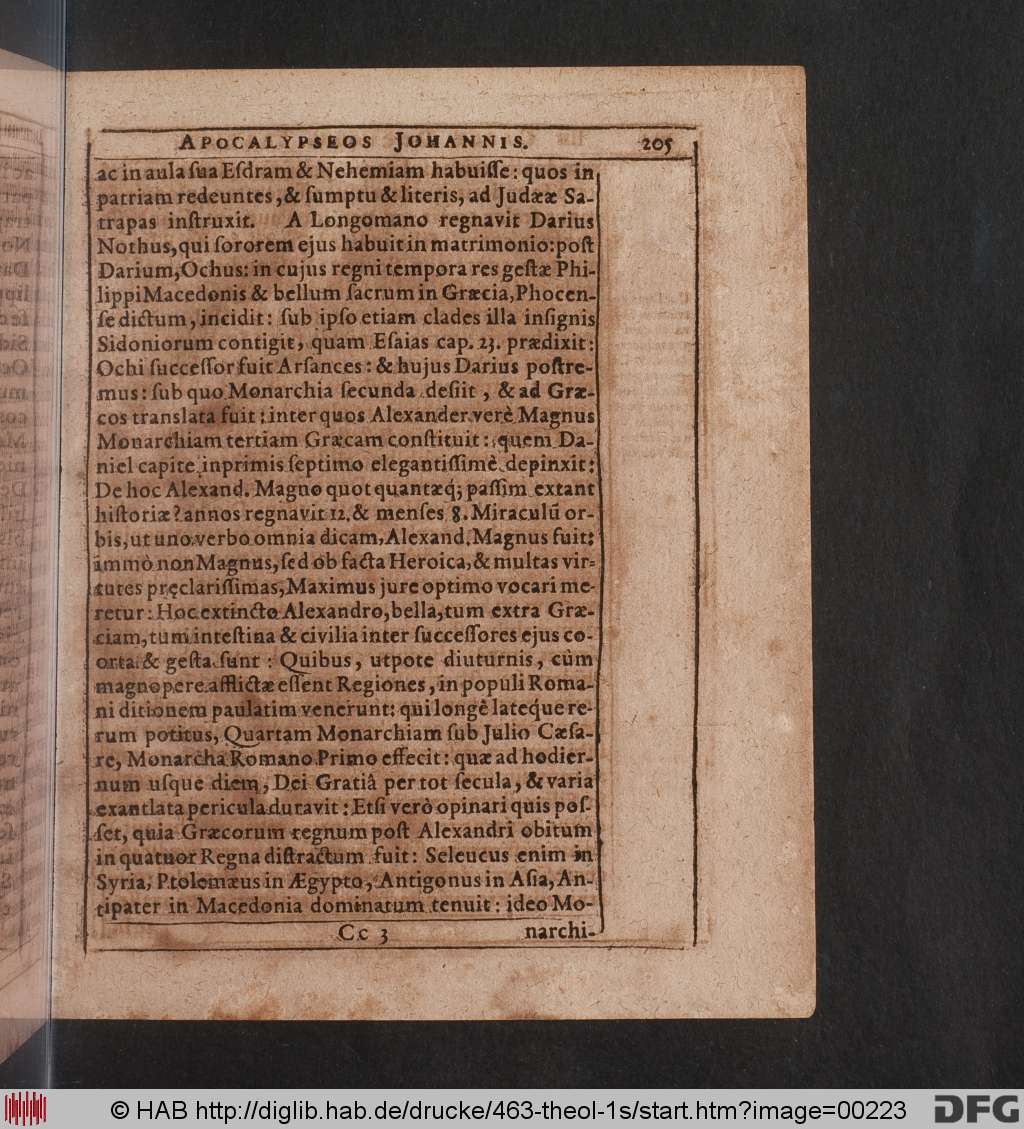 APOCALYPSEOS JOHANNIS. 205
ac in aula ſua Eſdram & Nehemiam habuiſſe: quos in
patriam redeuntes, & ſumptu & literis, ad Judææ Sa-
trapas inſtruxit. A Longomano regnavit Darius
Nothus, qui ſororem ejus habuit in matrimonio: poſt
Darium, Ochus: in cujus regni tempora res geſtæ Phi-
lippi Macedonis & bellum ſacrum in Græcia, Phocen-
ſe dictum, incidit: ſub ipſo etiam clades illa inſignis
Sidoniorum contigit, quam Eſaias cap. 23. prædixit:
Ochi ſucceſſor fuit Arſances: & hujus Darius poſtre-
mus: ſub quo Monarchia ſecunda deſiit, & ad Græ-
cos translata fuit: inter quos Alexander verè Magnus
Monarchiam tertiam Græcam conſtituit: quem Da-
niel capite inprimis ſeptimo elegantiſſimè depinxit:
De hoc Alexand. Magno quot quantæq; paſſim extant
hiſtoriæ? annos regnavit 12. & menſes 8. Miraculũ or-
bis, ut uno verbo omnia dicam, Alexand. Magnus fuit:
immò non Magnus, ſed ob facta Heroica, & multas vir-
tutes pręclariſſimas, Maximus jure optimo vocari me-
retur: Hoc extincto Alexandro, bella, tum extra Græ-
ciam, tum inteſtina & civilia inter ſucceſſores ejus co-
orta & geſta ſunt: Quibus, utpote diuturnis, cùm
magnopere afflictæ eſſent Regiones, in populi Roma-
ni ditionem paulatim venerunt: qui longè lateque re-
rum potitus, Quartam Monarchiam ſub Julio Cæſa-
re, Monarcha Romano Primo effecit: quæ ad hodier-
num uſque diem, Dei Gratiâ per tot ſecula, & varia
exantlata pericula duravit: Etſi verò opinari quis poſ-
ſet, quia Græcorum regnum poſt Alexandri obitum
in quatuor Regna diſtractum fuit: Seleucus enim in
Syria, Ptolemæus in Ægypto, Antigonus in Aſia, An-
tipater in Macedonia dominatum tenuit: ideo Mo-
Cc 3 narchi-
© HAB http://diglib.hab.de/drucke/463-theol-1s/start.htm?image=00223 DFG